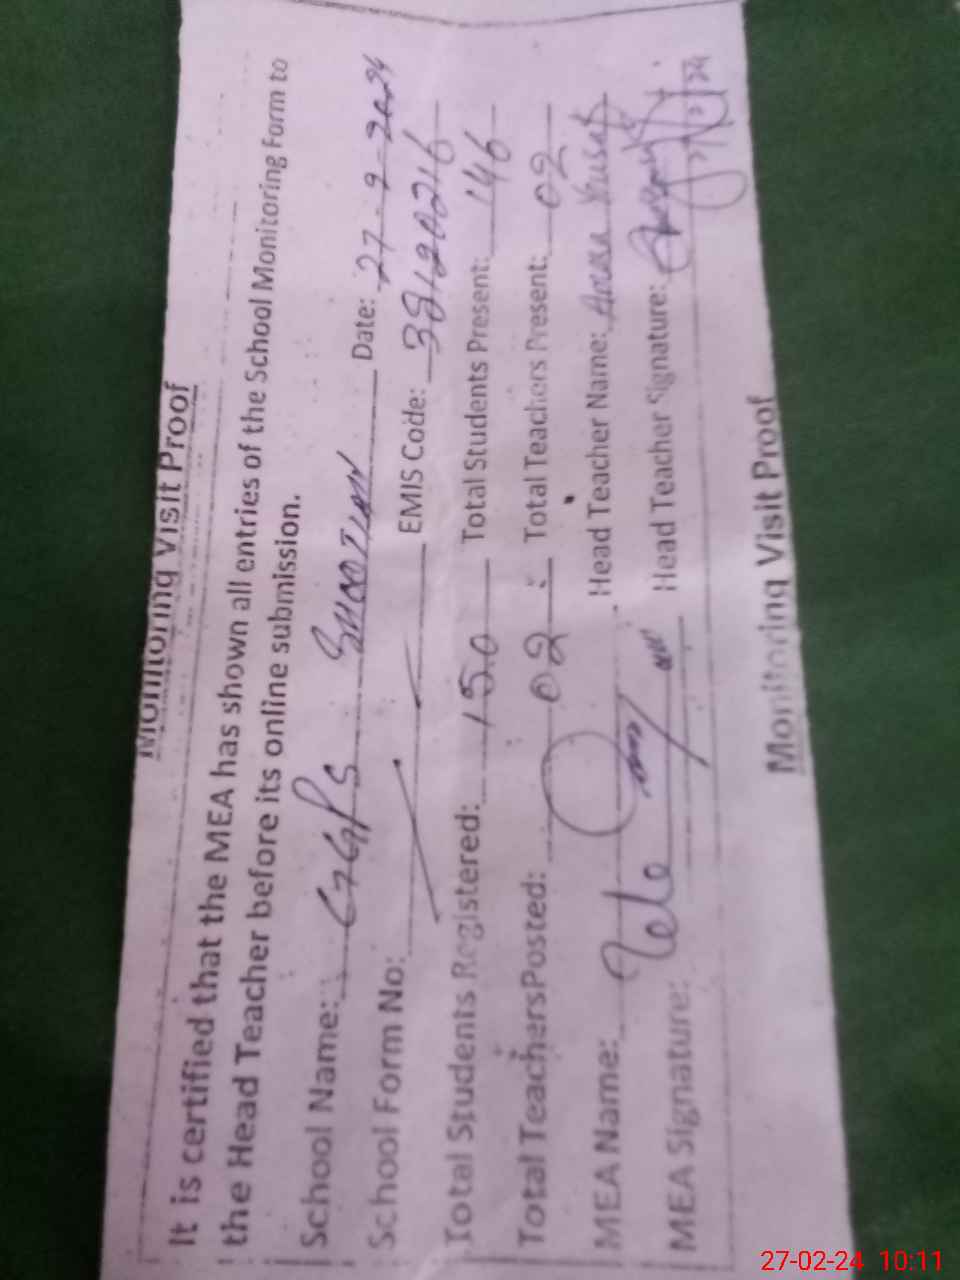 Monitoring Visit Proof
It is certified that the MEA has shown all entries of the School Monitoring Form to
the Head Teacher before its online submission.
School Name: GGPS Date: 27-2-2024
School Form No: EMIS Code: 38120216
Total Students Registered: 150 Total Students Present: 146
Total TeachersPosted: 02 Total Teachers Present: 02
MEA Name: Head Teacher Name: Yusuf
MEA Signature: Head Teacher Signature:
Monitoring Visit Proof
27-02-24 10:11